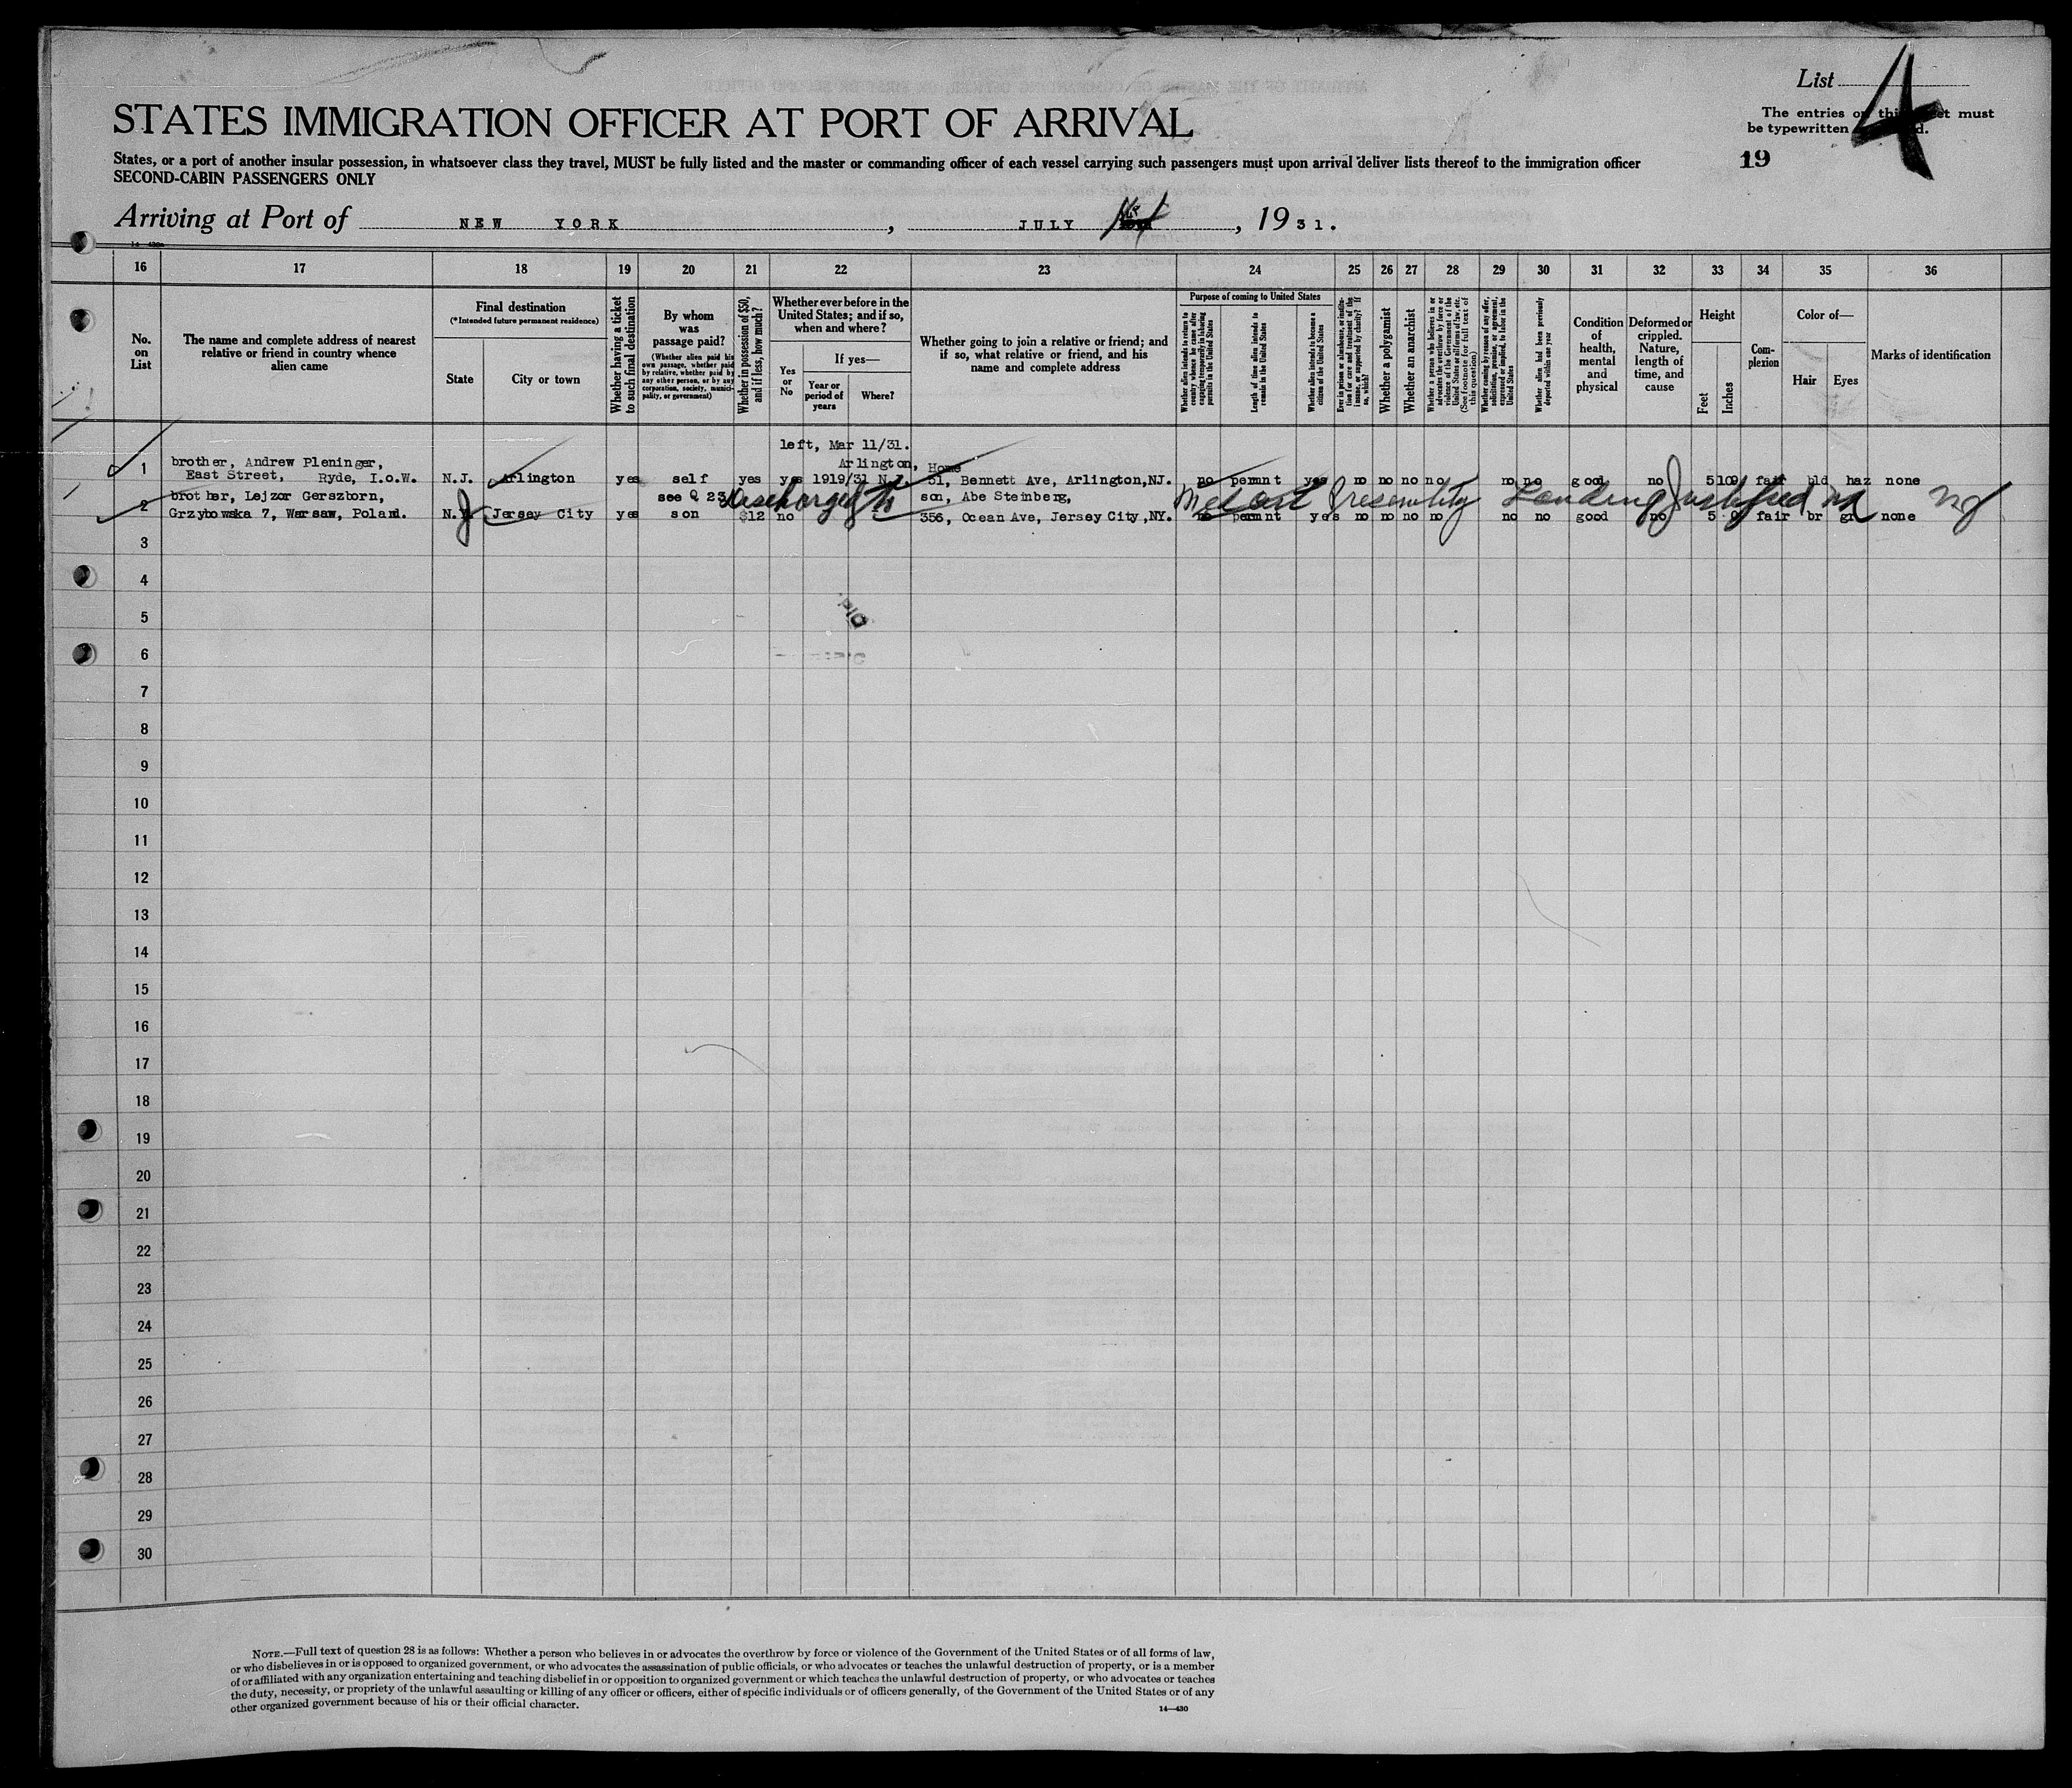 List 4
STATES IMMIGRATION OFFICER AT PORT OF ARRIVAL
The entries on this sheet must
be typewritten
States, or a port of another insular possession, in whatsoever class they travel, MUST be fully listed and the master or commanding officer of each vessel carrying such passengers must upon arrival deliver lists thereof to the immigration officer
19
SECOND-CABIN PASSENGERS ONLY
Arriving at Port of NEW YORK, JULY , 1931.
16 17 18 19 20 21 22 23 24 25 26 27 28 29 30 31 32 33 34 35 36
No. on List
The name and complete address of nearest
relative or friend in country whence
alien came
Final destination
(*Intended future permanent residence)
State
City or town
Whether having a ticket
to such final destination
By whom
was
passage paid?
(Whether alien paid his
own passage, whether paid
by relative, whether paid by
any other person, or by any
corporation, society, munici-
pality, or government)
Whether in possession of $50,
and if less, how much?
Whether ever before in the
United States; and if so,
when and where?
Yes
or
No
If yes—
Year or
period of
years
Where?
Whether going to join a relative or friend; and
if so, what relative or friend, and his
name and complete address
Purpose of coming to United States
Whether alien intends to return to
country whence he came after
engaging temporarily in laboring
pursuits in the United States
Length of time alien intends to
remain in the United States
Whether alien intends to become a
citizen of the United States
Ever in prison or almshouse, or institu-
tion for care and treatment of the
insane, or supported by charity? If
so, which?
Whether a polygamist
Whether an anarchist
Whether a person who believes in or
advocates the overthrow by force or
violence of the Government of the
United States or all forms of law, etc.
(See footnote for full text of
this question)
Whether coming by reason of any offer,
solicitation, promise, or agreement,
expressed or implied, to labor in the
United States
Whether alien had been previously
deported within one year
Condition
of
health,
mental
and
physical
Deformed or
crippled.
Nature,
length of
time, and
cause
Height
Feet
Inches
Com-
plexion
Color of—
Hair
Eyes
Marks of identification
left, Mar 11/31.
1 brother, Andrew Pleninger, Arlington, Home
East Street, Ryde, I.o.W. N.J. Arlington yes self yes yes 1919/31 N.J 51, Bennett Ave, Arlington,NJ. no permnt yes no no no no no no good no 5 10 fair bld haz none
2 brother, Lejzor Gerszborn, see Q 23 Discharged son, Abe Steinberg, Med cert Landing
Grzybowska 7, Warsaw, Poland. Jersey City yes son $12 no 356, Ocean Ave, Jersey City,NY. no permnt yes no no no no no no good no 5 0 fair br gr none
3
4
5
6
7
8
9
10
11
12
13
14
15
16
17
18
19
20
21
22
23
24
25
26
27
28
29
30
NOTE.—Full text of question 28 is as follows: Whether a person who believes in or advocates the overthrow by force or violence of the Government of the United States or of all forms of law,
or who disbelieves in or is opposed to organized government, or who advocates the assassination of public officials, or who advocates or teaches the unlawful destruction of property, or is a member
of or affiliated with any organization entertaining and teaching disbelief in or opposition to organized government or which teaches the unlawful destruction of property, or who advocates or teaches
the duty, necessity, or propriety of the unlawful assaulting or killing of any officer or officers, either of specific individuals or of officers generally, of the Government of the United States or of any
other organized government because of his or their official character.
14—430